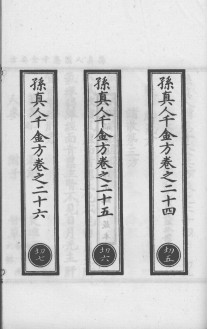 孫真人千金方卷之二十四
初五
孫真人千金方卷之二十五
初六
孫真人千金方卷之二十六
初七